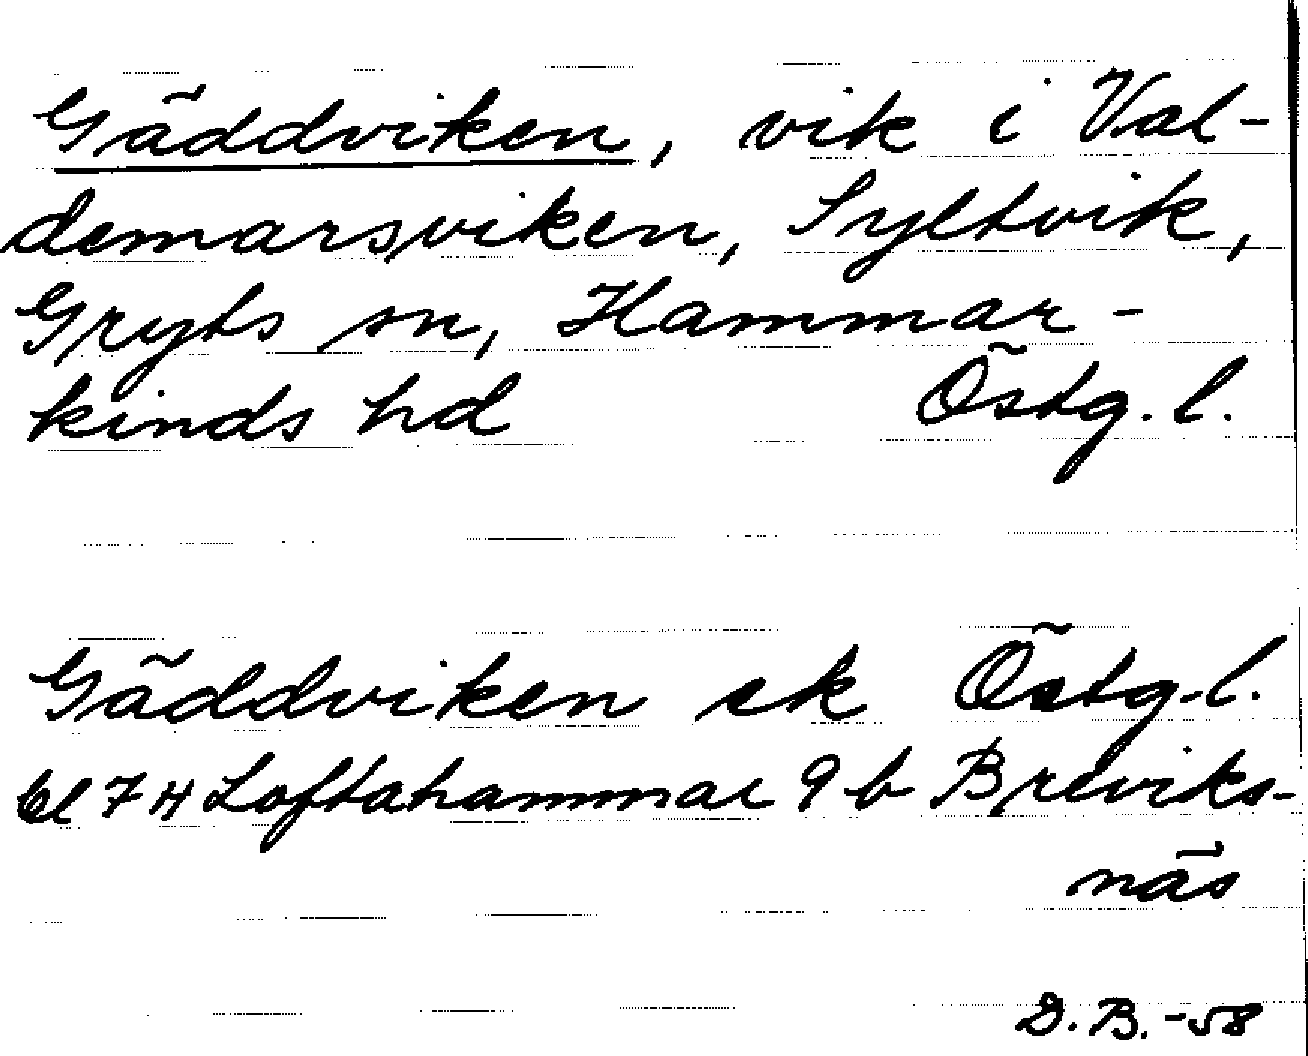 Gäddviken, vik i Val-
demarsviken, Syltvik,
Gryts sn, Hammar-
kinds hd Östg. l.
Gäddviken ek Östg. l.
bl 7 H Loftahammar 9 b Breviks-
näs
D. B. -58